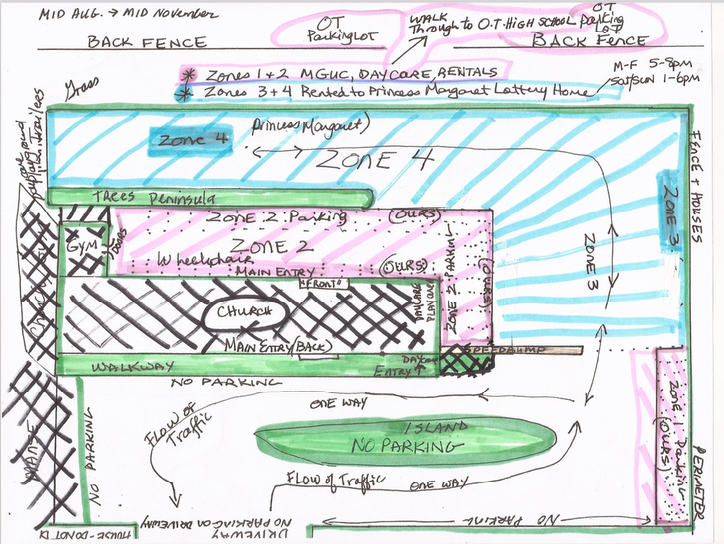 MID AUG. → MID NOVEMBER
OT
Parking Lot
WALK
Through to O.T. HIGH SCHOOL Parking
OT
LOT
BACK FENCE
BACK FENCE
* Zones 1+2 MGUC, DAYCARE, RENTALS
* Zones 3+4 Rented to Princess Margaret Lottery Home
M-F 5-8pm
Sat/Sun 1-6pm
Grass
Zone 4
Princess Margaret)
ZONE 4
ZONE 3
ZONE 3
FENCE + HOUSES
TREES Peninsula
ZONE 2 Parking (OURS)
GYM
DOORS
ZONE 2
Wheelchair
MAIN ENTRY
(OURS)
"FRONT"
ZONE 2 PARKING
(OURS)
CHURCH
DAYCARE
PLAYCARE
MAIN ENTRY (BACK)
DAYCARE
ENTRY ↑
SPEEDBUMP
WALKWAY
NO PARKING
ONE WAY
Flow of
Traffic
ISLAND
NO PARKING
Flow of Traffic ONE WAY
MANSE
NO PARKING
ZONE 1 Parking
(OURS)
PERIMETER
NO PARKING
DRIVEWAY
NO PARKING ON DRIVEWAY